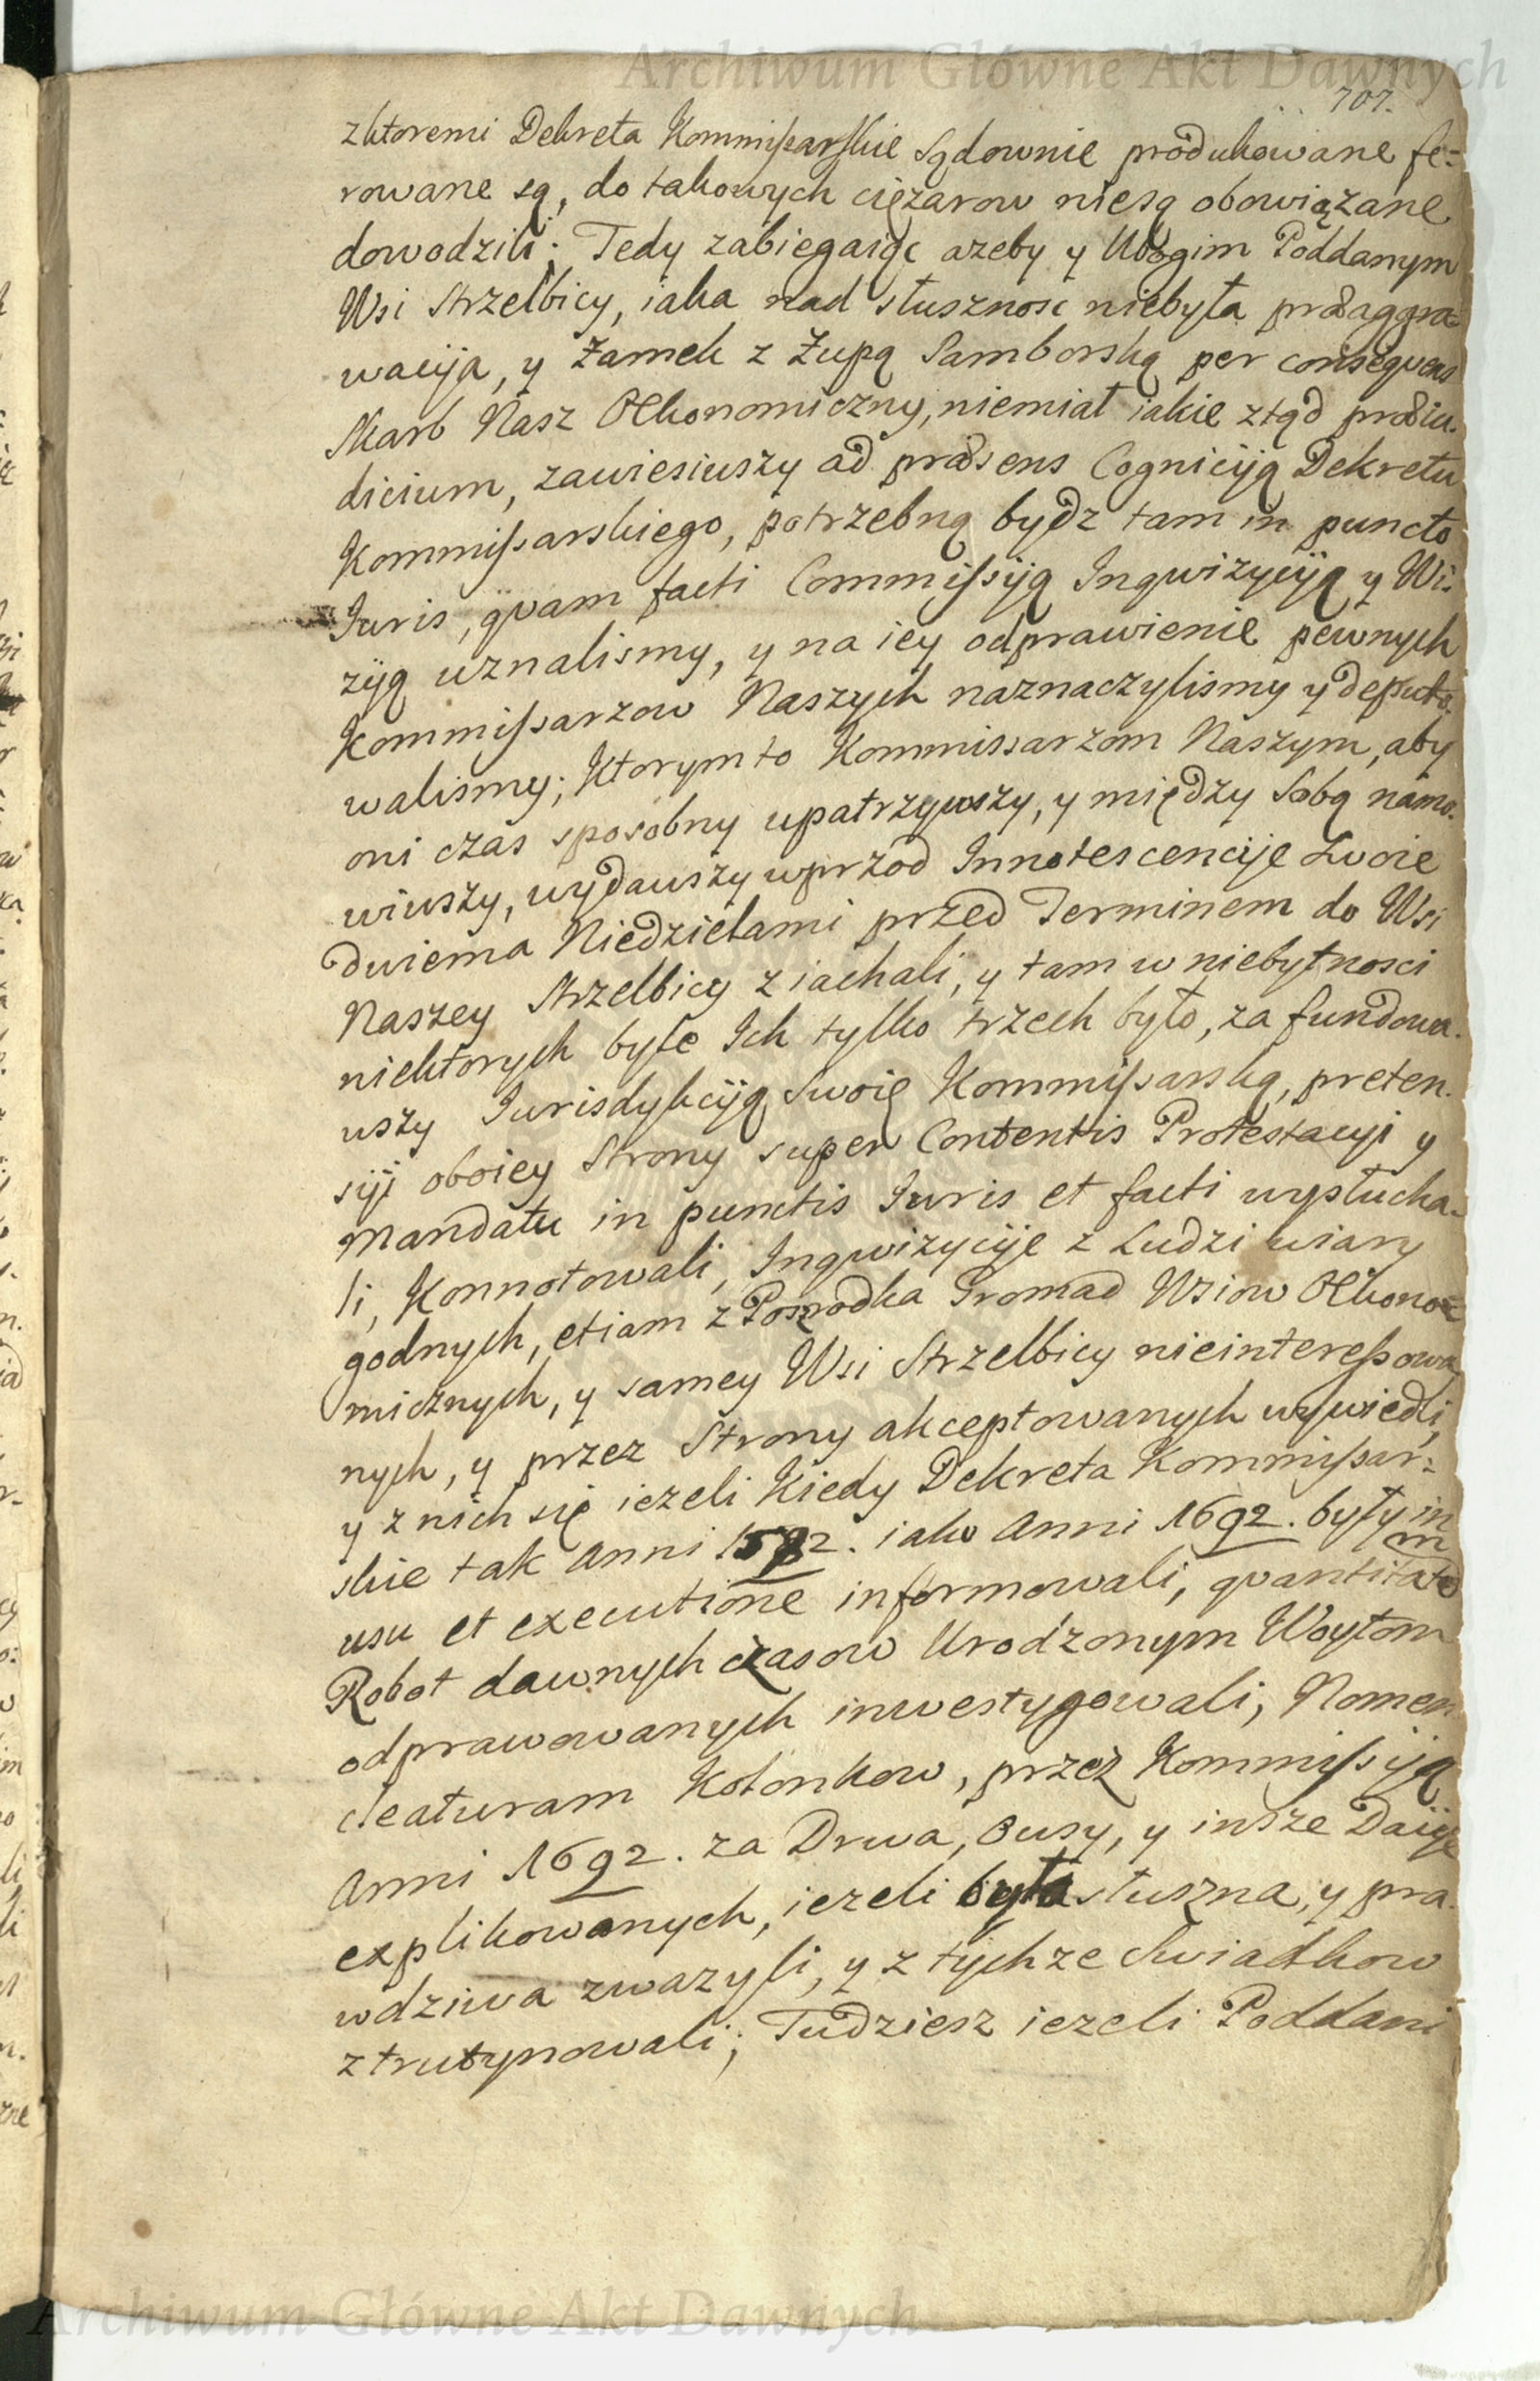 Archiwum Główne Akt Dawnych
707.
zktoremi Dekreta Kommissarskie Sądownie produkowane fe=
rowane są, do takowych cięzarow niesą obowiązane
dowodzili: Tedy zabiegaiąc azeby y Ubogim Poddanym
Wsi Strzelbicy, iaka nad słusznosc niebyła præaggra=
wacyja, y Zamek z Zupą Samborską per conseqvens
Skarb Nasz Œkonomiczny, niemiał iakie ztąd præiu.
dicium, zawiesiwszy ad præsens Cognicyją Dekretu
Kommissarskiego, potrzebną bydz tam in puncto
Iuris, qvam facti Commissyją Inqwizycyją y Wi.
zyją uznalismy, y na iey odprawienie pewnych
Kommissarzow Naszych naznaczylismy y deputo.
walismy; Ktorym to Kommissarzom Naszym, aby
oni czas sposobny upatrzywszy, y między Sobą namo.
wiwszy, wydawszy wprzod Innotescencyje Swoie
dwiema Niedzielami przed Terminem do Wsi
Naszey Strzelbicy ziachali, y tam w niebytnosci
niektorych byle Ich tylko trzech było, za fundowa.
wszy Iurisdykcyją Swoię Kommissarską, preten.
syji oboiey Strony super Contentis Protestacyi y
Mandatu in punctis Iuris et facti wysłucha-
li, Konnotowali, Inqwizycyje z Ludzi wiary
godnych, etiam z Posrodka Gromad Wsiow Œkono=
micznych, y samey Wsi Strzelbicy nieinteressowa
nych, y przez Strony akceptowanych wywiedli,
y z nich się iezeli Kiedy Dekreta Kommissar=
skie tak Anni 1592. iako Anni 1692. były in
usu et executione informowali, qvantitatem
Robot dawnych czasow Urodzonym Woytom
odprawowanych inwestygowali, Nomen
clcaturam Kolonkow, przez Kommissyją
Anni 1692. za Drwa, Busy, y insze Daiye
explikowanych, iezeli była słuszna, y pra.
wdziwa zwazyli, y z tychze Swiadkow
ztrutynowali; Tudziesz iezeli Poddani
Archiwum Główne Akt Dawnych